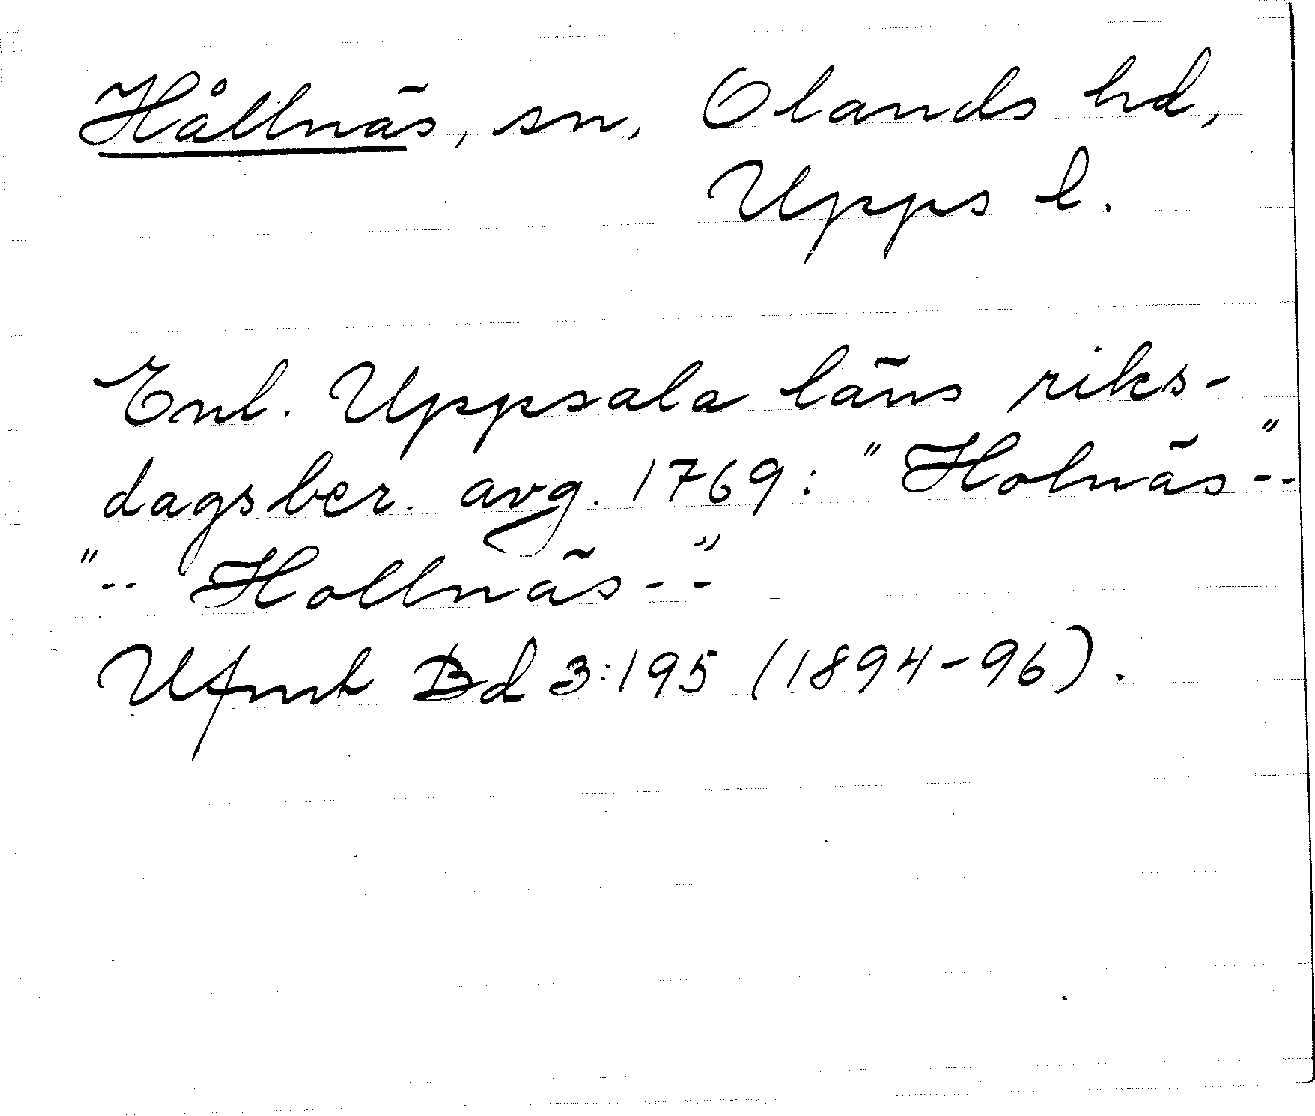 Hållnäs, sn, Olands hd,
Upps l.
Enl. Uppsala läns riks-
dagsber. avg. 1769: "Holnäs--"
"-- Hollnäs--"
Ufmt Bd 3:195 (1894-96).